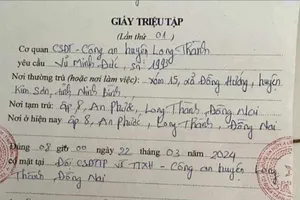 GIẤY TRIỆU TẬP
(Lần thứ 01)
Cơ quan CSĐT - Công an huyện Long Thành
yêu cầu Vũ Minh Đức, sn: 1995
Nơi thường trú (hoặc nơi làm việc): xóm 15, xã Đồng Hướng, huyện
Kim Sơn, tỉnh Ninh Bình
Nơi tạm trú: ấp 8, An Phước, Long Thành, Đồng Nai
Nơi ở hiện nay ấp 8, An Phước, Long Thành, Đồng Nai
Đúng 08 giờ 00 ngày 22 tháng 03 năm 2024
có mặt tại Đội CSĐTTP về TTXH - Công an huyện Long
Thành, Đồng Nai